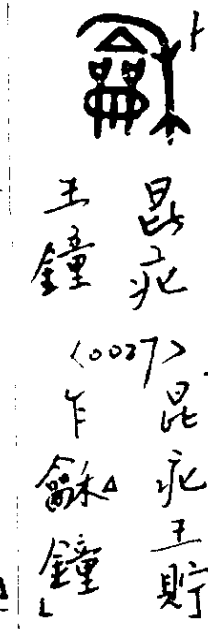 昆疕
王鐘
〈0027〉
昆疕王貯
乍龢△鐘